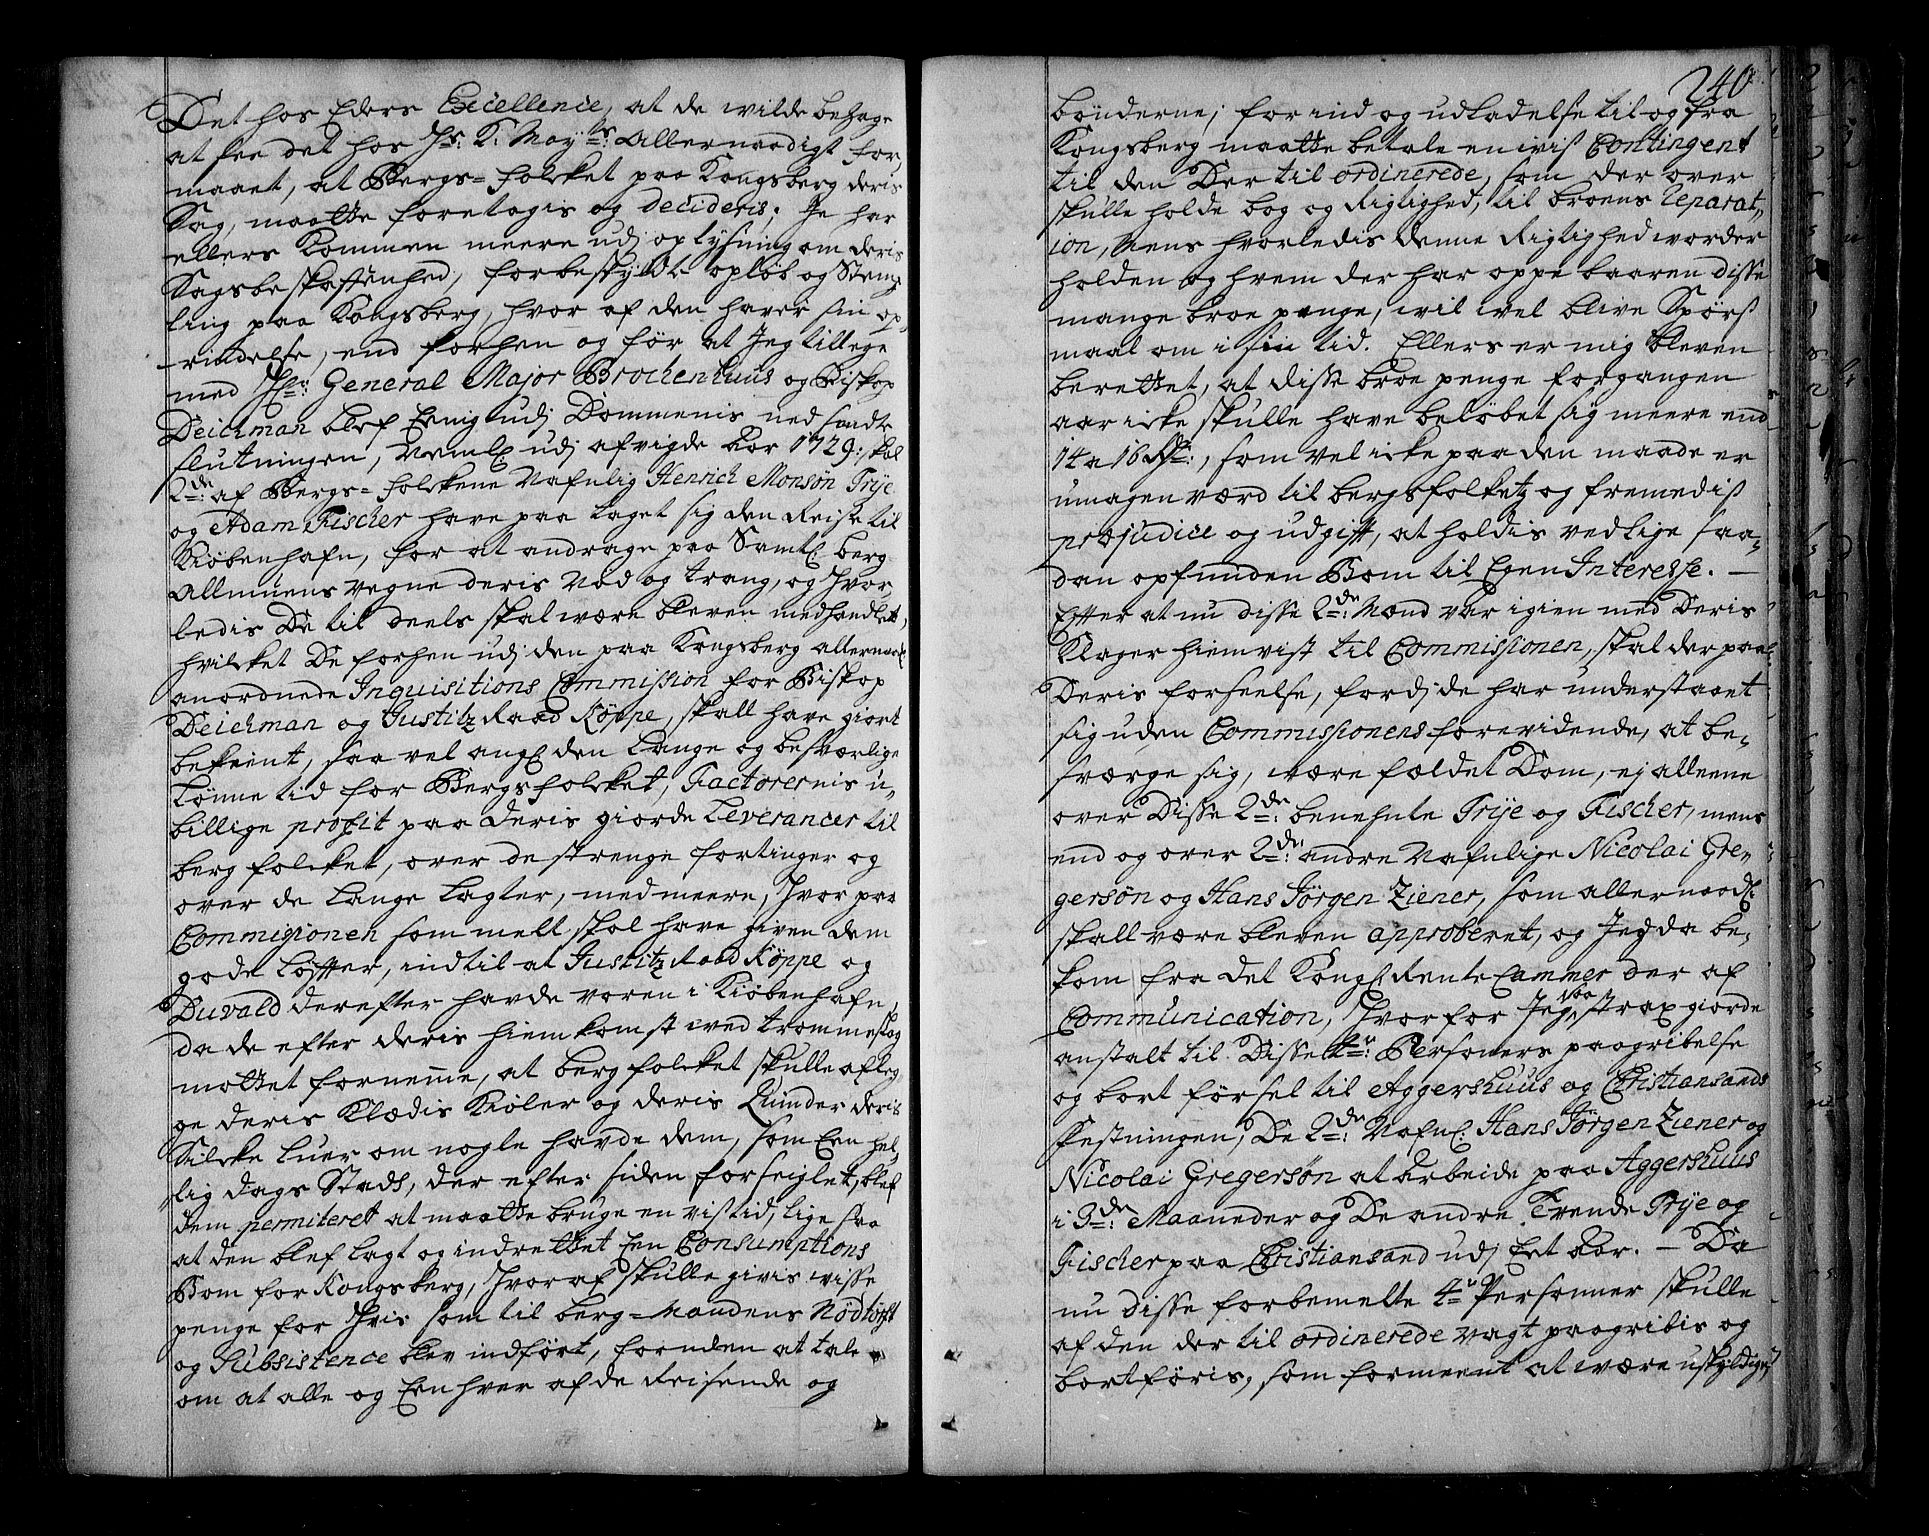 Det hos Eders Excellence, at de wilde behage
at see det hos Hs: K: May:ts: Allernaadigst for,
maaet, at Bergs=folcket paa Kongsberg deris
Sag, maatte foretagis og decideris; Je har
ellers Kommen meere udj oplysning om deris
Sags beskaffenhed, forbeskyldte opløb og Stem,
ling paa Kongsberg, hvor af den haver sin op,
-rindelse, end forhen og før at Jeg tillege
med Hr: General Major Brochenhuus og Biskop
Deichman blef Eenig udj Dommenis ned sendte
slutningen, Neml: udj afvigde Aar 1729: skal
2de: af Bergs=folckene Nafnlig Henrich Monsøn Trije
og Adam Fischer have paa taget sig den Reise til
Kiöbenhafn, for at andrage paa Samtl: berg
Allmuens vegne deris Nød og trang, og Hvor,
ledis De til deels skal wære bleven medhandlet,
hvilcket De forhen udj den paa Kongsberg allernaad:
anordnede Inquisitions Commission for Biskop
Deichman og Justitz Raad Köppe, skall have giort
bekient, saa vel ang: den Lange og besværlige
Lønne tid for Bergsfolcket, Factorernis u,,
billige profit paa deris giorde Leverancer til
berg folcket, over de strenge fortinger og
over de Lange Lagter, med meere, Hvor paa
Commissionen som melt skal have given dem
gode Løffter, indtil at Justitz Raad Köppe og
Duvald derefter havde voren i Kiöbenhafn,
da de efter deris hiemkomst wed trommeslag
mottet fornemme, at berg folcket skulle afleg,
ge deris Klædis Kioler og deris Lunder deris
Silcke Luer om nogle havde dem, som Een hel,
lig dags Stads, der efter siden forseiglet, blef
dem permiteret at maatte bruge en vis tid, lige saa
at den blef lagt og indrettet Een Consumptions
Bom for Kongsberg, Hvoraf skulle givis wisse
penge for Hvis som til berg=Mandens Nødtørft
og Subsistence blev indført, foruden at tale
om at alle og Eenhver af de Reisende og
240
bønderne, for ind og udladelse til og fra
Kongsberg maatte betale en wis Contingent
til den Der til ordinerede, som der over
skulle holde bog og Rigtighed, til broens Reparat,,
ion, Mens hvorledis denne Rigtighed worder
holden og hvem der har oppe baaren disse
mange broe penge, wil wel blive Spørs
maal om i sin tid. Ellers er mig bleven
berettet, at disse broe penge forgangen
aar icke skulle have beløbet sig meere end
14 a 16 Rdr:, som vel icke paa den maade er
umagen værd til bergsfolketz og fremedis
præjudice og udgift, at holdis ved lige saa,,
dan opfunden Bom til Egen Interesse. —
Efter at nu disse 2de: Mænd var igien med Deris
Klager hiemvist til Commissionen, skal der paa
Deris forseelse, fordj de har understaaet
sig uden Commissionens forevidende, at be,,
sværge sig, være fældet Dom, ej alleene
over Disse 2de: benefnte Trije og Fischer, mens
end og over 2de: andre Nafnlige Nicolai Gre,,
gersøn og Hans Jörgen Ziener, som allernaad:
skall være bleven approberet, og Jeg da be,,
kom fra det Kongl: Rente Cammer der af
Communication, Hvorfor Jeg strax giorde
anstalt til Disse 4re: Personers paagribelse
og bort førsel til Aggershuus og Christiansands
Festningen, De 2de: Nafnl: Hans Jörgen Ziener og
Nicolai Gregersøn at arbeide paa Aggershuus
i 3de: Maaneder og De andre Tvende Trije og
Fischer paa Christiansand udj Eet Aar. — Da
nu disse forbemelte 4re Personner skulle
af den der til ordinerede vagt paagribis og
bortføris, som formeent at wære uskyldige